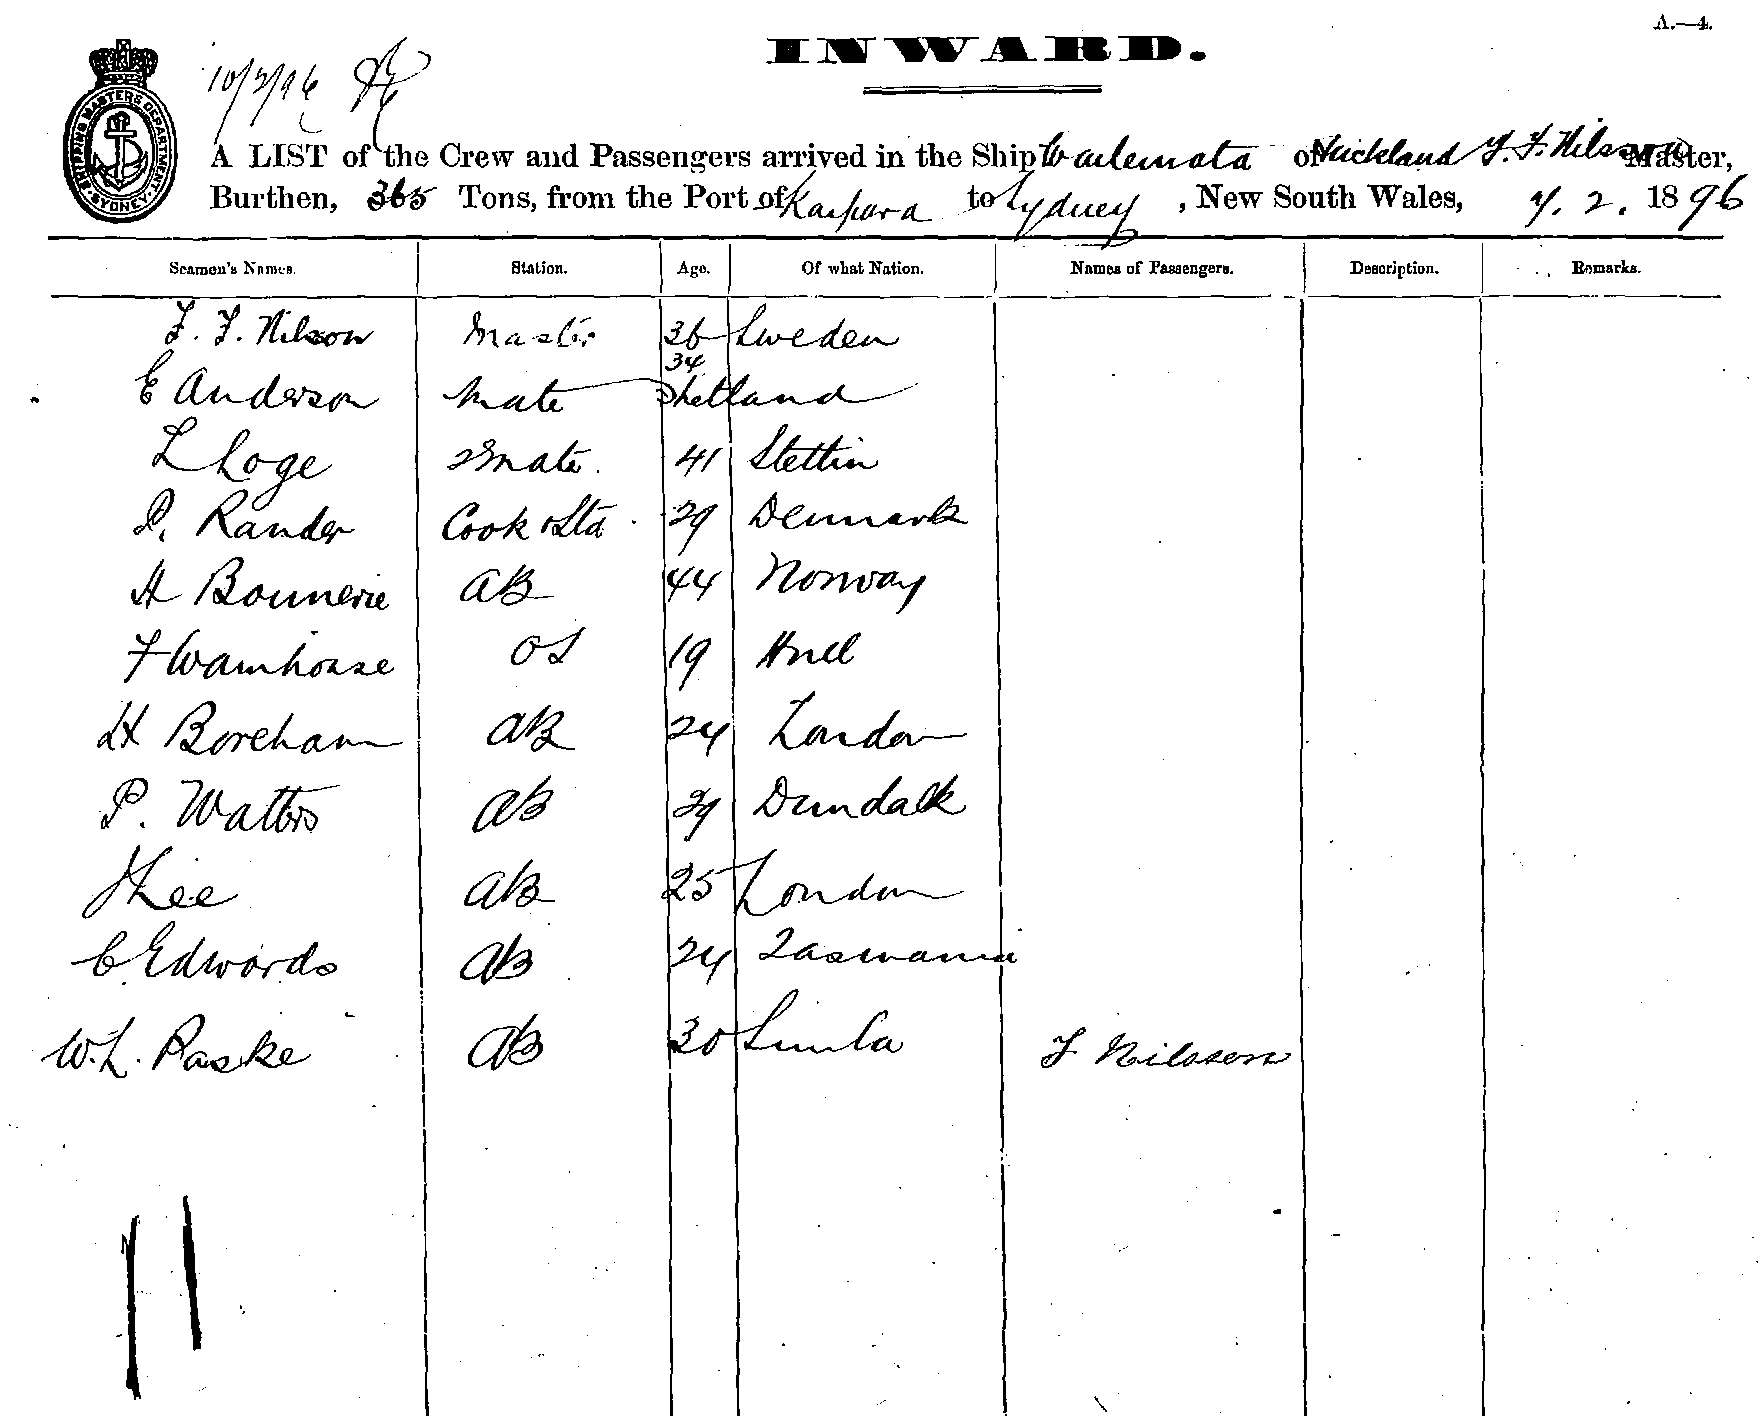 A.—4.
INWARD.
10/2/96
SHIPPING MASTERS DEPARTMENT SYDNEY
A LIST of the Crew and Passengers arrived in the Ship Waitemata of Auckland F. F. Nilsson Master,
Burthen, 365 Tons, from the Port of Kaipara to Sydney, New South Wales, 7. 2. 1896
Seamen's Names. Station. Age. Of what Nation. Names of Passengers. Description. Remarks.
F. F. Nilson Master 36 Sweden
E Anderson Mate 34 Shetland
L Loge 2 Mate. 41 Stettin
P. Rander Cook & Std 29 Denmark
H Bounerie AB 44 Norway
F Wamhouse OS 19 Hull
H Boreham AB 24 London
P. Watters AB 29 Dundalk
J Lee AB 25 London
C Edwards AB 24 Tasmania
W. L. Paske AB 30 Simla F Nilsson
11